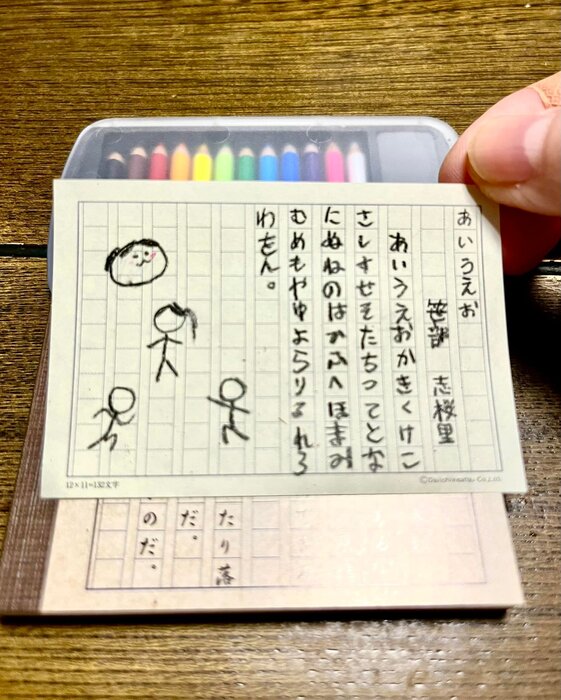 あいうえお
笹部 志桜里
あいうえおかきくけこ
さしすせそたちつてとな
にぬねのはひふへほまみ
むめもやゆよらりるれろ
わをん。
12×11=132文字
©Daiichiinsatsu Co.,Ltd.
たり落
だ。
のだ。